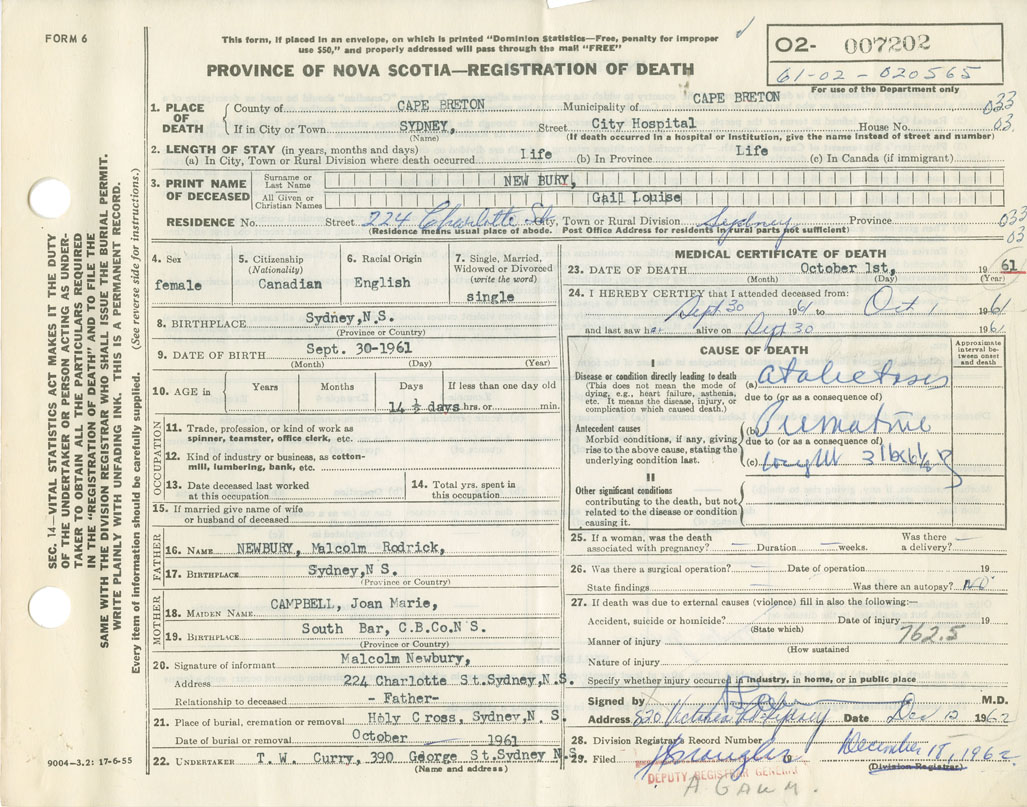 FORM 6
This form, if placed in an envelope, on which is printed "Dominion Statistics—Free, penalty for improper
use $50," and properly addressed will pass through the mail "FREE"
PROVINCE OF NOVA SCOTIA—REGISTRATION OF DEATH
O2- 007202
61-02-020565
For use of the Department only
1. PLACE OF DEATH
County of CAPE BRETON Municipality of CAPE BRETON
033
If in City or Town SYDNEY, Street City Hospital House No.
03.
(Name) (If death occurred in a hospital or institution, give the name instead of street and number)
2. LENGTH OF STAY (in years, months and days)
(a) In City, Town or Rural Division where death occurred Life (b) In Province Life (c) In Canada (if immigrant)
3. PRINT NAME OF DECEASED
Surname or Last Name NEW BURY,
All Given or Christian Names Gail Louise
RESIDENCE No. Street 224 Charlotte St. City, Town or Rural Division Sydney Province
033
03
(Residence means usual place of abode. Post Office Address for residents in rural parts not sufficient)
4. Sex
female
5. Citizenship
(Nationality)
Canadian
6. Racial Origin
English
7. Single, Married,
Widowed or Divorced
(write the word)
single
8. BIRTHPLACE Sydney, N.S.
(Province or Country)
9. DATE OF BIRTH Sept. 30-1961
(Month) (Day) (Year)
10. AGE in Years Months Days If less than one day old
14 ½ days hrs. or min.
OCCUPATION
11. Trade, profession, or kind of work as
spinner, teamster, office clerk, etc.
12. Kind of industry or business, as cotton-
mill, lumbering, bank, etc.
13. Date deceased last worked
at this occupation
14. Total yrs. spent in
this occupation
15. If married give name of wife
or husband of deceased
FATHER
16. NAME NEWBURY, Malcolm Rodrick,
17. BIRTHPLACE Sydney, N S.
(Province or Country)
MOTHER
18. MAIDEN NAME CAMPBELL, Joan Marie,
19. BIRTHPLACE South Bar, C.B.Co.N S.
(Province or Country)
20. Signature of informant Malcolm Newbury,
Address 224 Charlotte St.Sydney,N.S.
Relationship to deceased - Father-
21. Place of burial, cremation or removal Holy Cross, Sydney, N. S.
Date of burial or removal October 1961
22. UNDERTAKER T. W. Curry, 390 George St.Sydney N.S
(Name and address)
MEDICAL CERTIFICATE OF DEATH
23. DATE OF DEATH October 1st, 19 61
(Month) (Day) (Year)
24. I HEREBY CERTIFY that I attended deceased from:
Sept 30 1961 to Oct 1 1961
and last saw her alive on Sept 30 1961
CAUSE OF DEATH
Approximate
interval be-
tween onset
and death
I
Disease or condition directly leading to death
(This does not mean the mode of
dying, e.g., heart failure, asthenia,
etc. It means the disease, injury, or
complication which caused death.)
(a) Atalectosis
due to (or as a consequence of)
Antecedent causes
Morbid conditions, if any, giving
rise to the above cause, stating the
underlying condition last.
(b) Premature
due to (or as a consequence of)
(c) weight 3 lbs
II
Other significant conditions
contributing to the death, but not
related to the disease or condition
causing it.
25. If a woman, was the death
associated with pregnancy? Duration weeks.
Was there
a delivery?
26. Was there a surgical operation? Date of operation 19
State findings Was there an autopsy? NO
27. If death was due to external causes (violence) fill in also the following:—
Accident, suicide or homicide? Date of injury 19
(State which)
762.5
Manner of injury
(How sustained
Nature of injury
Specify whether injury occurred in industry, in home, or in public place
Signed by M.D.
Address 520 Victoria Rd. Sydney Date Dec 12 1962
28. Division Registrar's Record Number
29. Filed December 18, 1962
(Division Registrar)
DEPUTY REGISTRAR GENERAL
SEC. 14—VITAL STATISTICS ACT MAKES IT THE DUTY
OF THE UNDERTAKER OR PERSON ACTING AS UNDER-
TAKER TO OBTAIN ALL THE PARTICULARS REQUIRED
IN THE "REGISTRATION OF DEATH" AND TO FILE THE
SAME WITH THE DIVISION REGISTRAR WHO SHALL ISSUE THE BURIAL PERMIT.
WRITE PLAINLY WITH UNFADING INK. THIS IS A PERMANENT RECORD.
Every item of information should be carefully supplied. (See reverse side for instructions.)
9004-3.2: 17-6-55